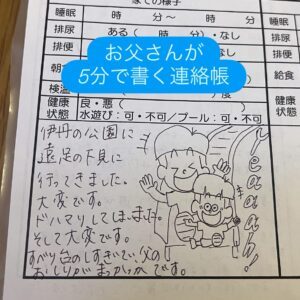 家での様子
睡眠 時 分〜 時 分
排尿 ある( 時 分)・なし
排便
朝
検温
健康状態 良・悪(
水遊び:可・不可/プール:可・不可
睡眠
排尿
排便
給食
健康状態
お父さんが
5分で書く連絡帳
伊丹の公園に
遠足の下見に
行ってきました。
大変です。
ドハマりしてしまいました。
そして大変です。
すべり台のしすぎでい、父の
おしりがまっかっかです。
Yeaaah!